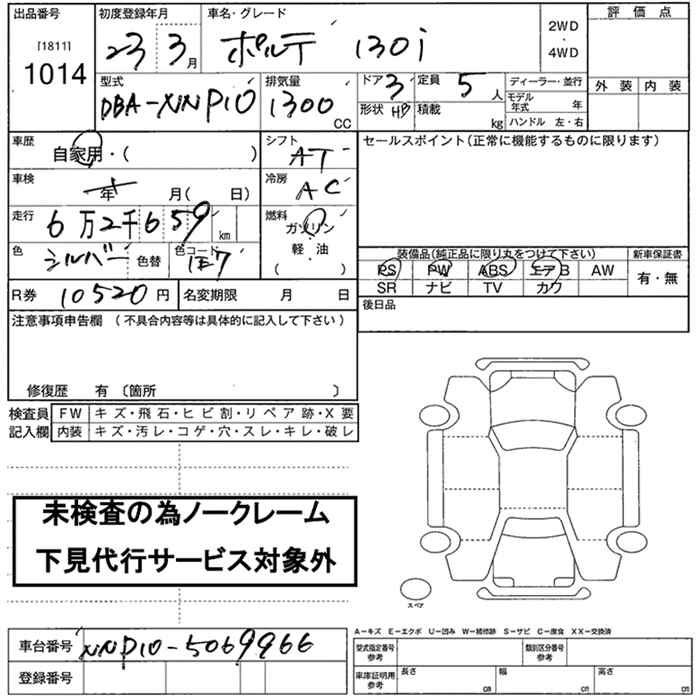 出品番号 初度登録年月 車名・グレード 評価点
[1811] 1014 23 3月 ポルテ 130i 2WD・4WD
外装 内装
型式 排気量 ドア 3 定員 5人 ディーラー・並行
DBA-NNP10 1300 CC 形状 HB 積載 kg モデル年式 年
ハンドル 左・右
車歴 自家用・( ) シフト AT セールスポイント(正常に機能するものに限ります)
車検 年 月( 日) 冷房 AC
走行 6万2千659km 燃料 ガソリン・軽・油・( )
色 シルバー 色替 色コード 1E7
装備品(純正品に限り丸をつけて下さい) 新車保証書
PS PW ABS エアB AW 有・無
SR ナビ TV カワ
R券 10520円 名変期限 月 日
後日品
注意事項申告欄 (不具合内容等は具体的に記入して下さい)
修復歴 有〔箇所 〕
検査員 FW キズ・飛石・ヒビ割・リペア跡・X要
記入欄 内装 キズ・汚レ・コゲ・穴・スレ・キレ・破レ
未検査の為ノークレーム
下見代行サービス対象外
スペア
A−キズ E−エクボ U−凹み W−補修跡 S−サビ C−腐食 XX−交換済
車台番号 NNP10-5069966
登録番号
型式指定番号 参考 類別区分番号 参考
車庫証明用 参考 長さ cm 幅 cm 高さ cm